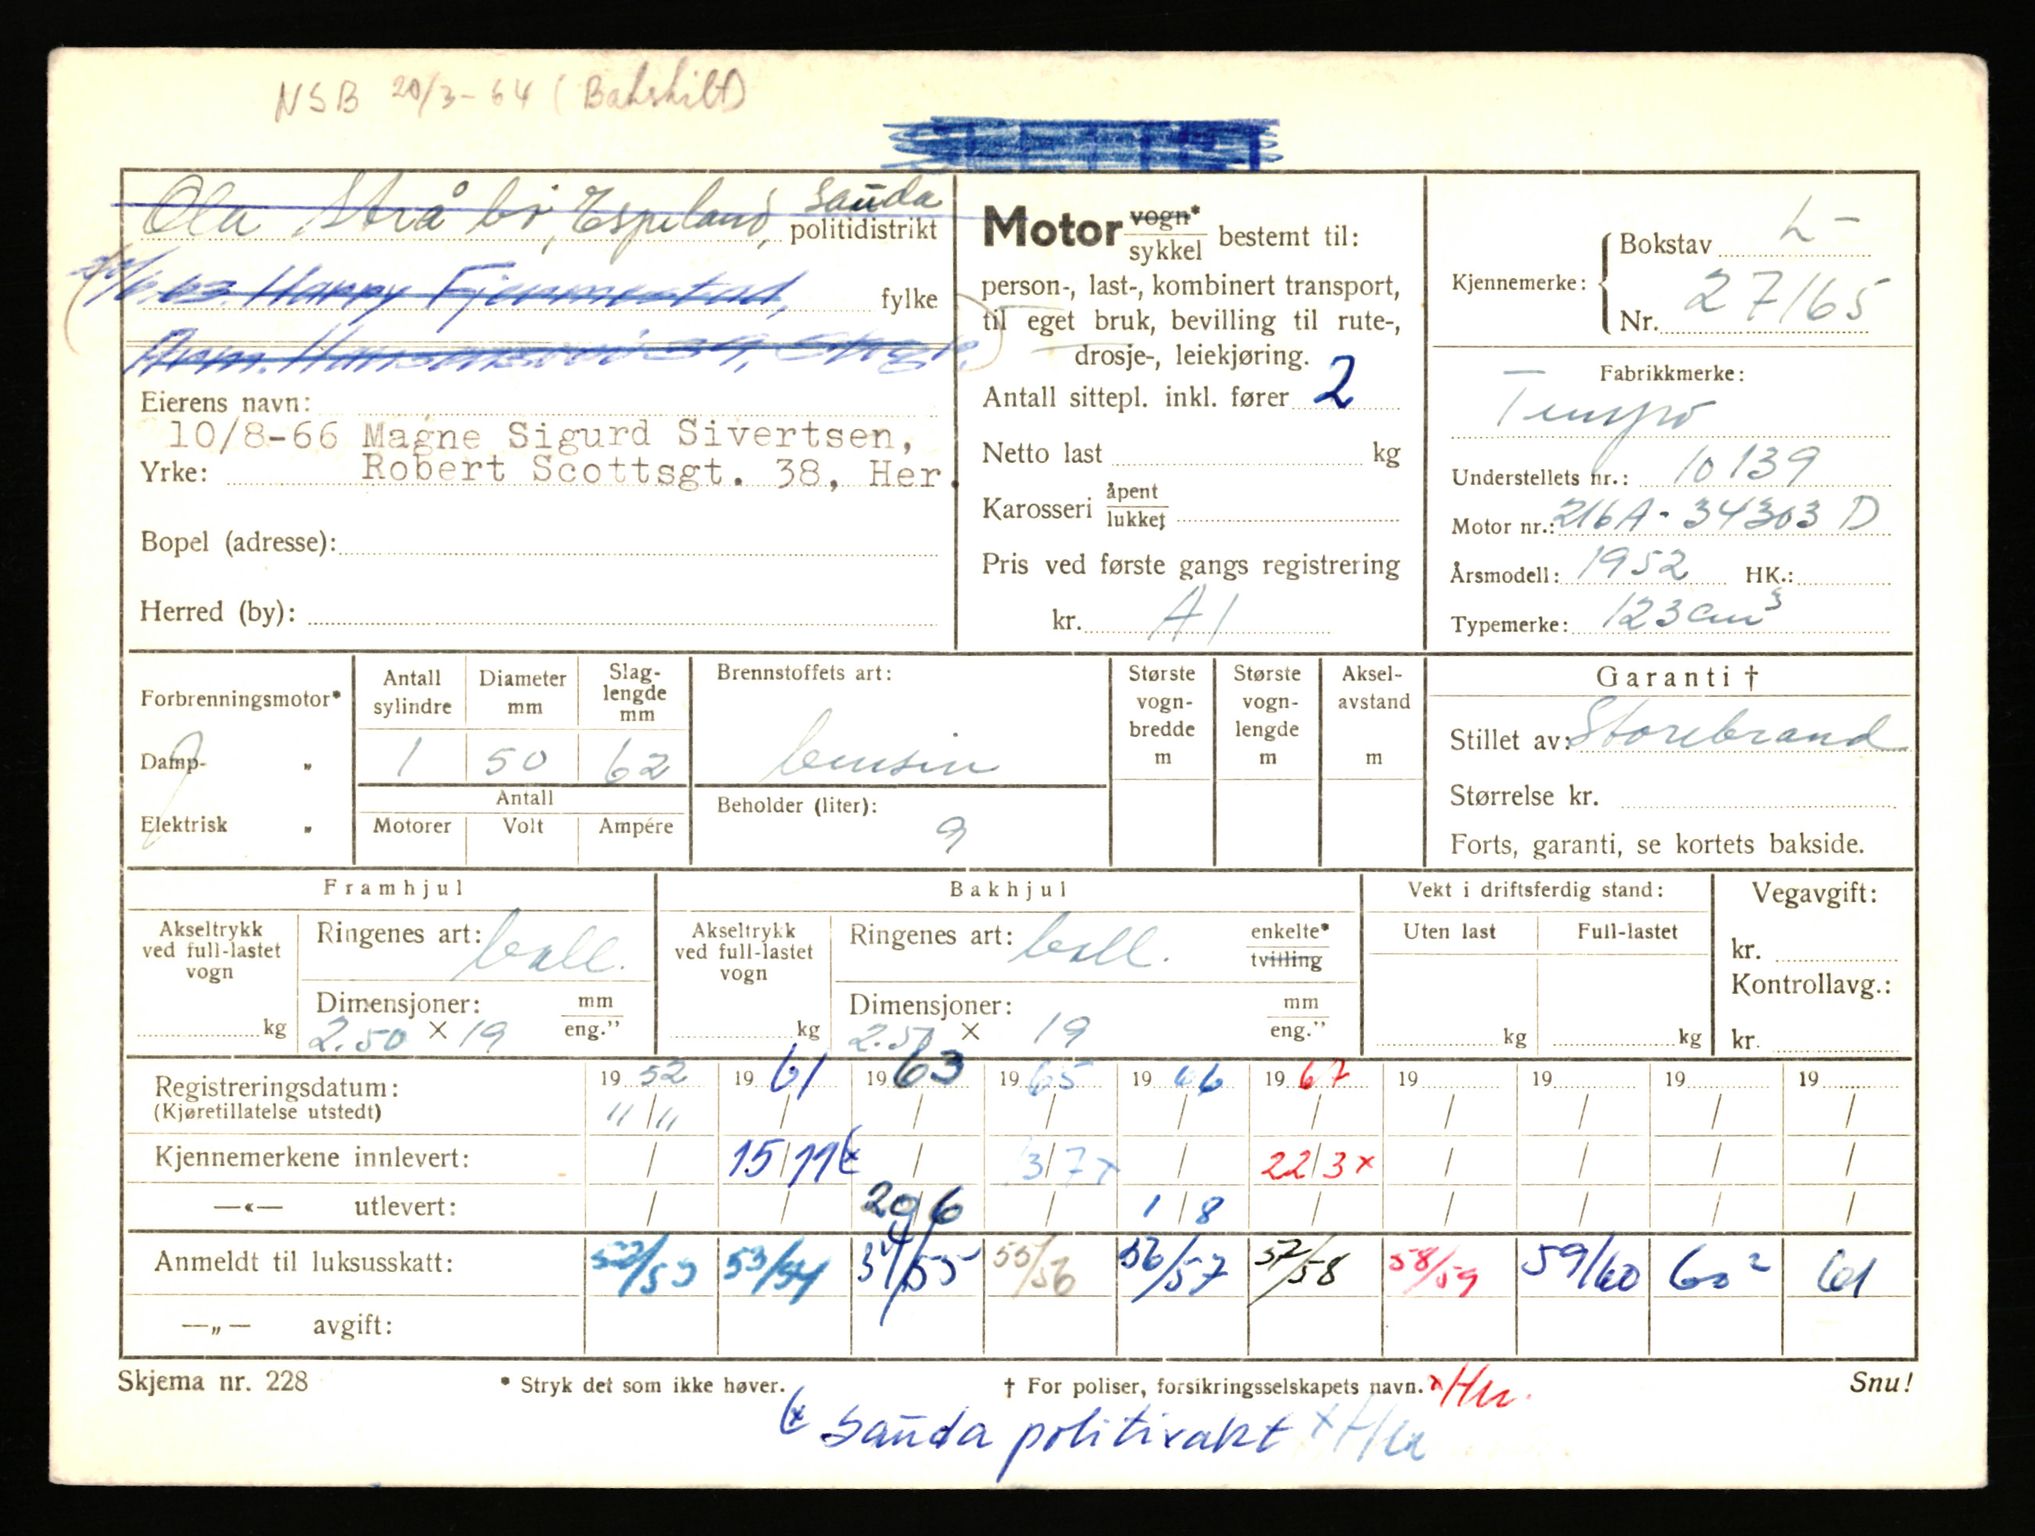 NSB 20/3-64 (Bakskilt)
Ola Stråbø, Espeland, Sauda
politidistrikt
Harry Fjermestad,
fylke
Eierens navn:
10/8-66 Magne Sigurd Sivertsen,
Yrke: Robert Scottsgt. 38, Her.
Bopel (adresse):
Herred (by):
Motor vogn* sykkel bestemt til:
person-, last-, kombinert transport,
til eget bruk, bevilling til rute-,
drosje-, leiekjøring.
Antall sittepl. inkl. fører 2
Netto last kg
Karosseri åpent lukket
Pris ved første gangs registrering
kr. A1
Kjennemerke: Bokstav L-
Nr. 27165
Fabrikkmerke:
Tempo
Understellets nr.: 10139
Motor nr.: 216A-34303 D
Årsmodell: 1952 HK.:
Typemerke: 123 cm3
Forbrenningsmotor*
Damp- „
Elektrisk „
Antall sylindre
Diameter mm
Slag-lengde mm
1 50 62
Antall
Motorer Volt Ampére
Brennstoffets art:
bensin
Beholder (liter):
9
Største vogn-bredde m
Største vogn-lengde m
Aksel-avstand m
Garanti †
Stillet av: Storebrand
Størrelse kr.
Forts, garanti, se kortets bakside.
Framhjul
Akseltrykk ved full-lastet vogn
kg
Ringenes art: ball.
Dimensjoner: mm eng."
2.50 × 19
Bakhjul
Akseltrykk ved full-lastet vogn
kg
Ringenes art: ball. enkelte* tvilling
Dimensjoner: mm eng."
2.50 × 19
Vekt i driftsferdig stand:
Uten last Full-lastet
kg kg
Vegavgift:
kr.
Kontrollavg.:
kr.
Registreringsdatum: 1952 1961 1963 1965 1966 1967 19 19 19 19
(Kjøretillatelse utstedt) 11/11 / / / / / / / / /
Kjennemerkene innlevert: / 15/11 (x / 3/7 x / 22/3 x / / / /
—«— utlevert: / / 20/6 / 1/8 / / / / /
Anmeldt til luksusskatt: 52/53 53/54 54/55 55/56 56/57 57/58 58/59 59/60 60² 61
—„— avgift:
Skjema nr. 228
* Stryk det som ikke høver.
† For poliser, forsikringsselskapets navn. x Her.
Snu!
(x Sauda politivakt x Her